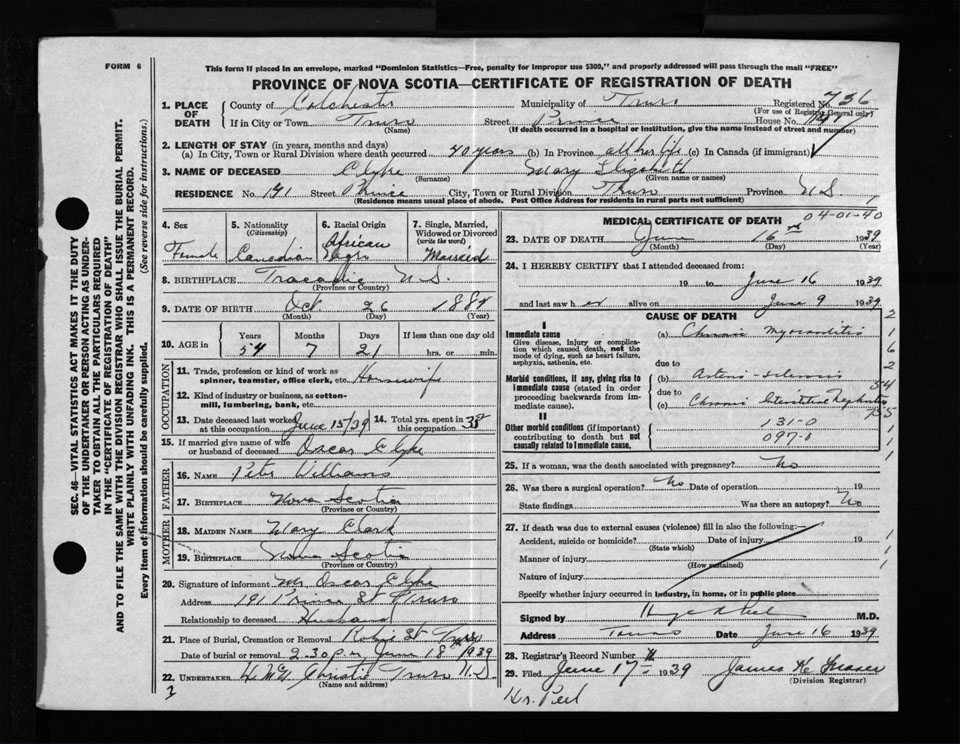 FORM 6
This form if placed in an envelope, marked "Dominion Statistics—Free, penalty for improper use $300," and properly addressed will pass through the mail "FREE"
PROVINCE OF NOVA SCOTIA—CERTIFICATE OF REGISTRATION OF DEATH
SEC. 46—VITAL STATISTICS ACT MAKES IT THE DUTY
OF THE UNDERTAKER OR PERSON ACTING AS UNDER-
TAKER TO OBTAIN ALL THE PARTICULARS REQUIRED
IN THE "CERTIFICATE OF REGISTRATION OF DEATH"
AND TO FILE THE SAME WITH THE DIVISION REGISTRAR WHO SHALL ISSUE THE BURIAL PERMIT.
WRITE PLAINLY WITH UNFADING INK. THIS IS A PERMANENT RECORD.
Every item of information should be carefully supplied. (See reverse side for instructions.)
1. PLACE OF DEATH
County of Colchester Municipality of Truro Registered No. 736
(For use of Registrar General only)
If in City or Town Truro Street Prince House No. 191
(Name) (If death occurred in a hospital or institution, give the name instead of street and number)
2. LENGTH OF STAY (in years, months and days)
(a) In City, Town or Rural Division where death occurred 40 years (b) In Province all her life (c) In Canada (if immigrant)
3. NAME OF DECEASED Clyke Mary Elizabeth
(Surname) (Given name or names)
RESIDENCE No. 191 Street Prince City, Town or Rural Division Truro Province N S
(Residence means usual place of abode. Post Office Address for residents in rural parts not sufficient)
4. Sex Female
5. Nationality (Citizenship) Canadian
6. Racial Origin African Negro
7. Single, Married, Widowed or Divorced (write the word) Married
8. BIRTHPLACE Tracadie N.S.
(Province or Country)
9. DATE OF BIRTH Oct 26 1884
(Month) (Day) (Year)
10. AGE in Years Months Days If less than one day old
54 7 21 hrs. or min.
OCCUPATION
11. Trade, profession or kind of work as
spinner, teamster, office clerk, etc. Housewife
12. Kind of industry or business, as cotton-
mill, lumbering, bank, etc.
13. Date deceased last worked at this occupation June 15/39
14. Total yrs. spent in this occupation 38
15. If married give name of wife
or husband of deceased Oscar Clyke
FATHER
16. NAME Peter Williams
17. BIRTHPLACE Nova Scotia
(Province or Country)
MOTHER
18. MAIDEN NAME Mary Clark
19. BIRTHPLACE Nova Scotia
(Province or Country)
20. Signature of informant Mr Oscar Clyke
Address 191 Prince St Truro
Relationship to deceased Husband
21. Place of Burial, Cremation or Removal Robie St Truro
Date of burial or removal 2.30 p.m June 18th 1939
22. UNDERTAKER Christie Truro N.S
(Name and address)
MEDICAL CERTIFICATE OF DEATH
04-01-40
23. DATE OF DEATH June 16th 1939
(Month) (Day) (Year)
24. I HEREBY CERTIFY that I attended deceased from:
19 to June 16 1939
and last saw her alive on June 9 1939
CAUSE OF DEATH
I
Immediate cause
Give disease, injury or complica-
tion which caused death, not the
mode of dying, such as heart failure,
asphyxia, asthenia, etc.
(a) Chronic myocarditis
due to
Morbid conditions, if any, giving rise to
immediate cause (stated in order
proceeding backwards from im-
mediate cause).
(b) Arterio-sclerosis
due to
(c) Chronic Interstitial Nephritis
II
Other morbid conditions (if important)
contributing to death but not
causally related to immediate cause.
131-0
097-0
25. If a woman, was the death associated with pregnancy? No
26. Was there a surgical operation? No Date of operation 19
State findings Was there an autopsy? No
27. If death was due to external causes (violence) fill in also the following:
Accident, suicide or homicide? Date of injury 19
(State which)
Manner of injury
(How sustained)
Nature of injury
Specify whether injury occurred in industry, in home, or in public place
Signed by M.D.
Address Truro Date June 16 1939
28. Registrar's Record Number
29. Filed June 17 1939 James K Fraser
(Division Registrar)
Dr. Peel